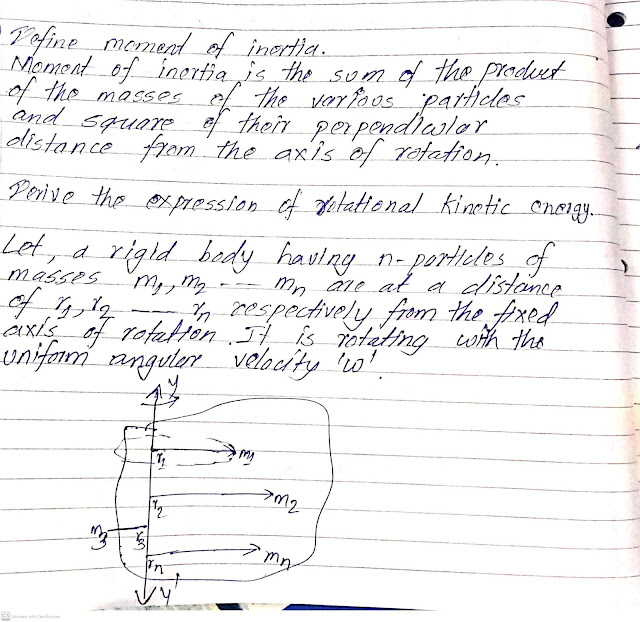 Define moment of inertia.
Moment of inertia is the sum of the product
of the masses of the various particles
and square of their perpendicular
distance from the axis of rotation.
Derive the expression of rotational kinetic energy.
Let, a rigid body having n-particles of
masses m₁, m₂ --- mₙ are at a distance
of r₁, r₂ --- rₙ respectively from the fixed
axis of rotation. It is rotating with the
uniform angular velocity 'ω'.
Y
r₁ m₁
r₂ m₂
m₃ r₃
rₙ mₙ
Y'
CS Scanned with CamScanner